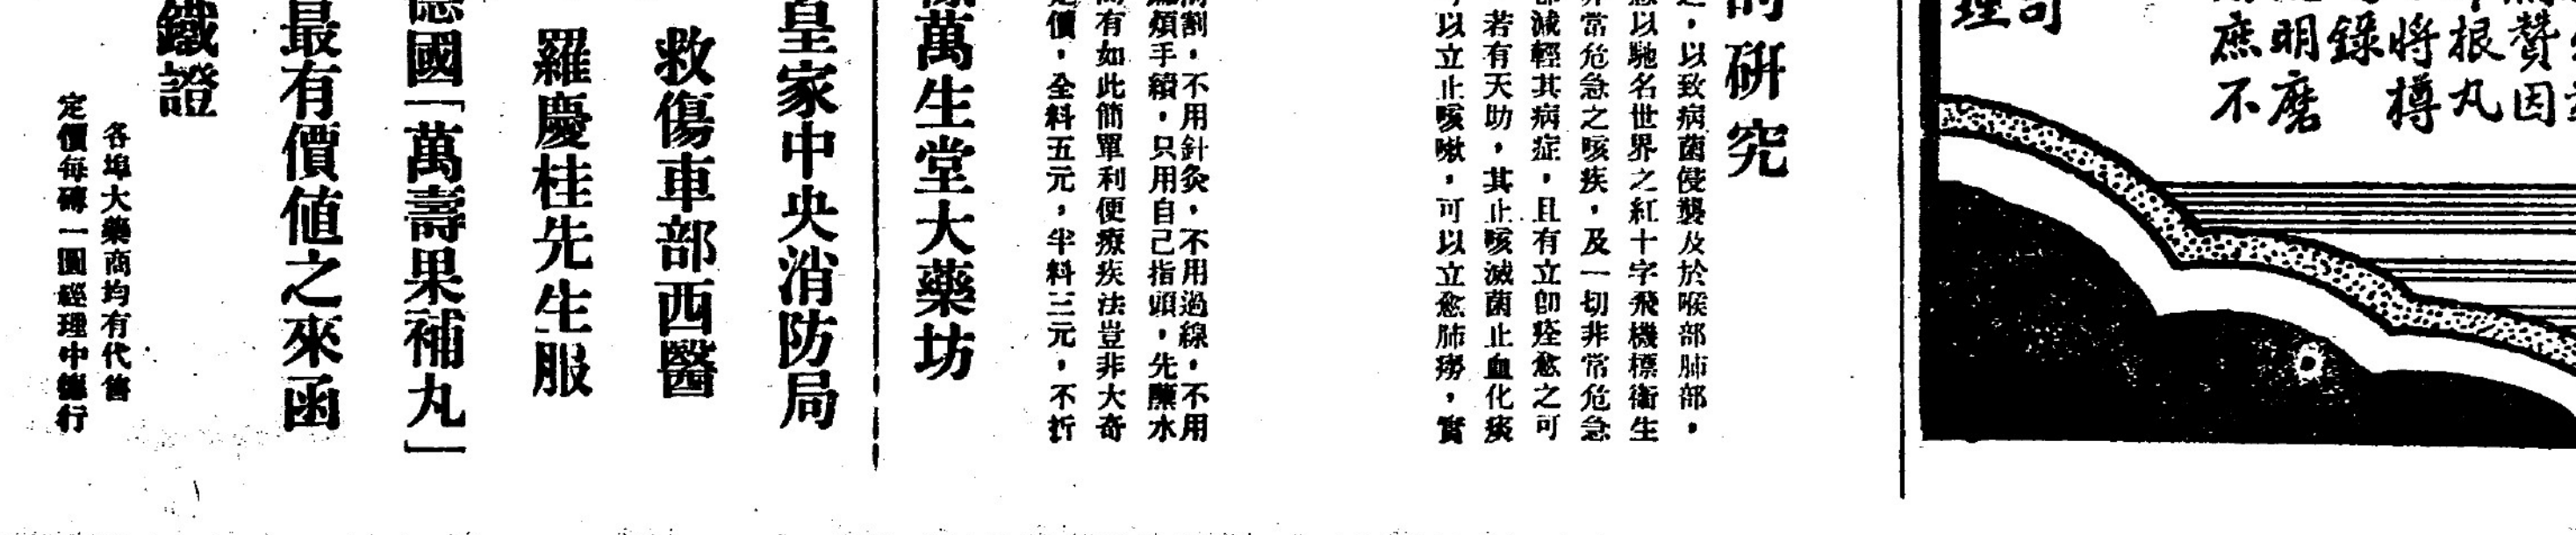 理司
贊因
根丸
將樽
錄
明磨
庶不
研究
，以致病菌侵襲及於喉部肺部，
以馳名世界之紅十字飛機標衛生
常危急之咳疾，及一切非常危急
減輕其病症，且有立即痊愈之可
若有天助，其止咳滅菌止血化痰
以立止咳嗽，可以立愈肺癆，實
割，不用針灸，不用過線，不用
煩手續，只用自己指頭，先蘸水
有如此簡單利便療疾法豈非大奇
價，全料五元，半料三元，不折
萬生堂大藥坊
皇家中央消防局
救傷車部西醫
羅慶桂先生服
德國「萬壽果補丸」
最有價值之來函
鐵證
各埠大藥商均有代售
定價每磚一圓經理中德行